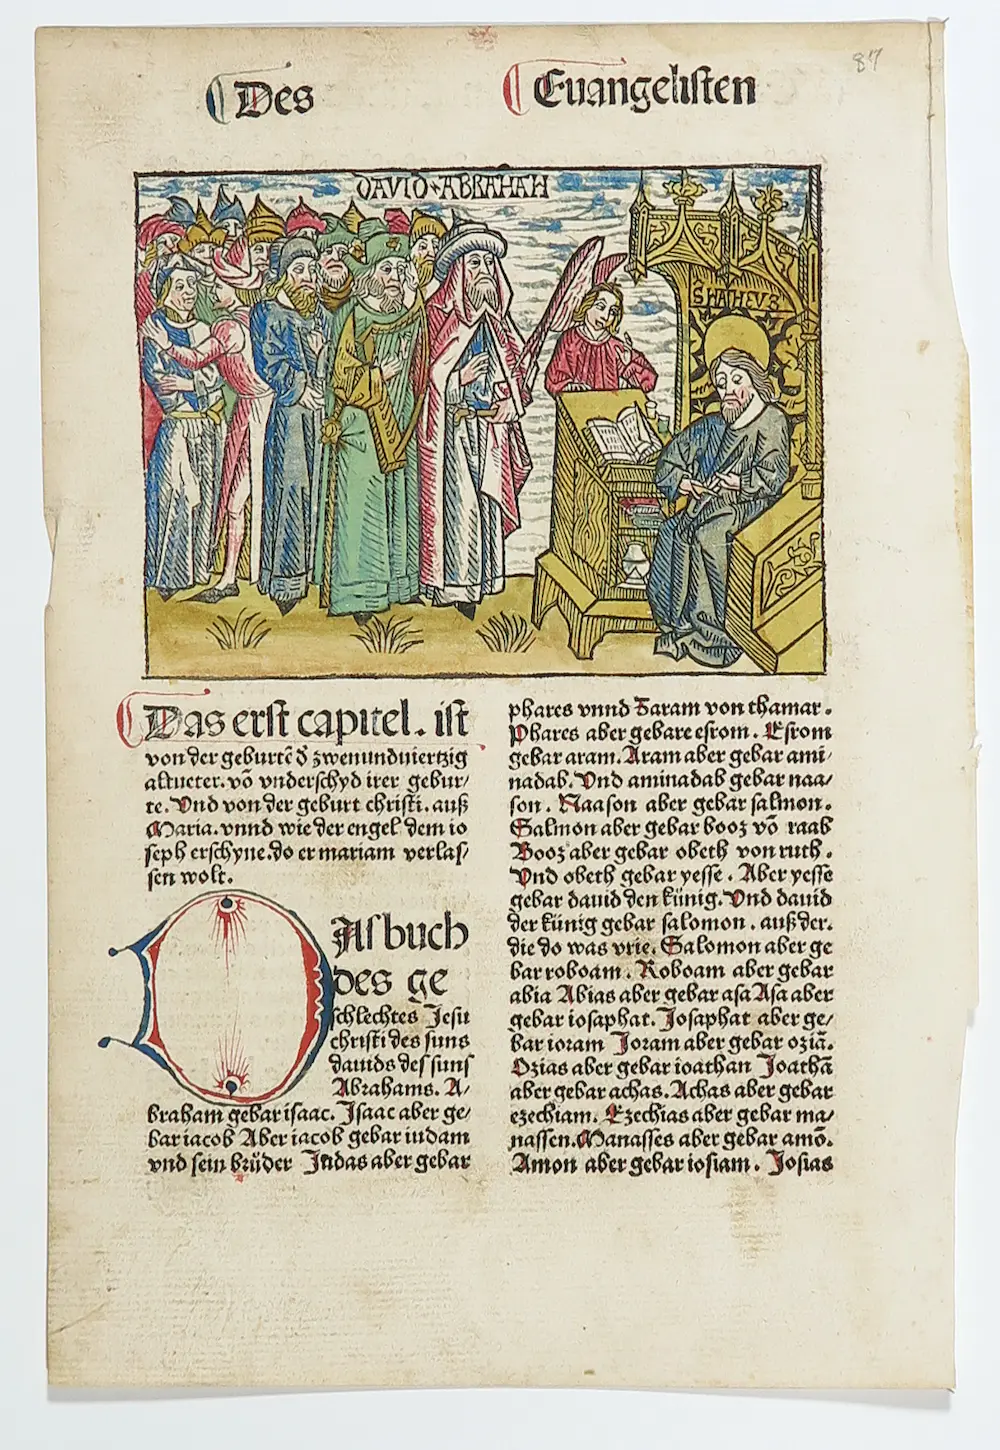 87
Des Euangelisten
DAVID·ABRAHAM
S MATHEVS
Das erst capitel. ist
von der geburtē d̄ zwenundviertzig
altueter. vō vnderschyd irer gebur-
te. Vnd von der geburt christi. auß
Maria. vnnd wie der engel dem io
seph erschyne. do er mariam verlas-
sen wolt.
DAs buch
des ge
schlechtes Jesu
christi des suns
dauids des suns
Abrahams. A-
braham gebar isaac. Jsaac aber ge-
bar iacob Aber iacob gebar iudam
vnd sein brüder Judas aber gebar
phares vnnd Zaram von thamar.
Phares aber gebare esrom. Esrom
gebar aram. Aram aber gebar ami-
nadab. Vnd aminadab gebar naa-
son. Naason aber gebar salmon.
Salmon aber gebar booz vō raab
Booz aber gebar obeth von ruth.
Vnd obeth gebar yesse. Aber yesse
gebar dauid den künig. Vnd dauid
der künig gebar salomon. auß der.
die do was vrie. Salomon aber ge
bar roboam. Roboam aber gebar
abia Abias aber gebar asa Asa aber
gebar iosaphat. Josaphat aber ge-
bar ioram Joram aber gebar oziā.
Ozias aber gebar ioathan Joathā
aber gebar achas. Achas aber gebar
ezechiam. Ezechias aber gebar ma-
nassen. Manasses aber gebar amō.
Amon aber gebar iosiam. Josias